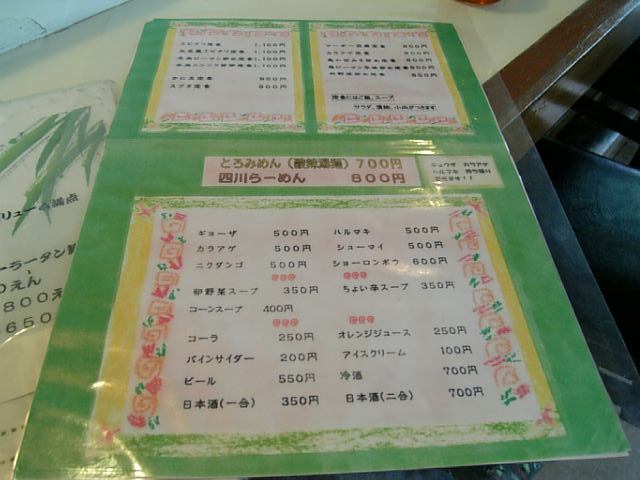 エビチリ定食 1,100円
1,100円
牛肉ピーマン炒め定食 1,100円
牛肉ニンニク芽炒め定食 1,100円
かに玉定食 950円
スブタ定食 900円
マーボー豆腐定食 800円
カラアゲ定食 800円
800円
鳥ピーマン辛味炒め定食 800円
肉野菜炒め定食 850円
定食にはご飯、スープ
サラダ、漬物、小皿がつきます。
とろみめん(酸辣湯麺) 700円
四川らーめん 800円
ギョーザ カラアゲ
ハルマキ 持ち帰り
できます!!
ギョーザ 500円 ハルマキ 500円
カラアゲ 500円 シューマイ 500円
ニクダンゴ 500円 ショーロンポウ 600円
卵野菜スープ 350円 ちょい辛スープ 350円
コーンスープ 400円
コーラ 250円 オレンジジュース 250円
パインサイダー 200円 アイスクリーム 100円
ビール 550円 冷酒 700円
日本酒(一合) 350円 日本酒(二合) 700円
リューム満点
ーラータン
0えん
800え
650